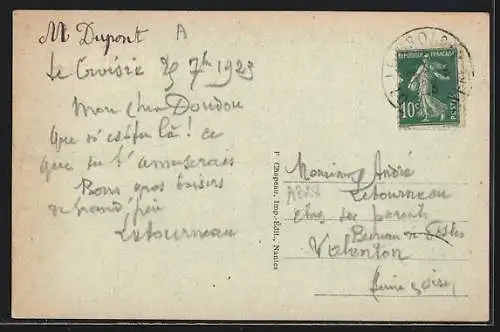 M Dupont A
Le Croisic 25 7bre 1923
Mon cher Doudou
Que n'es tu là ! ce
que tu t'amuserais
Bons gros baisers
de grand'père
Letourneau
F. Chapeau, Imp.-Edit., Nantes
LE CROISIC
REPUBLIQUE FRANÇAISE
10c
POSTES
Monsieur André
Letourneau
chez ses parents
Bureau de Postes
Valenton
Seine & Oise